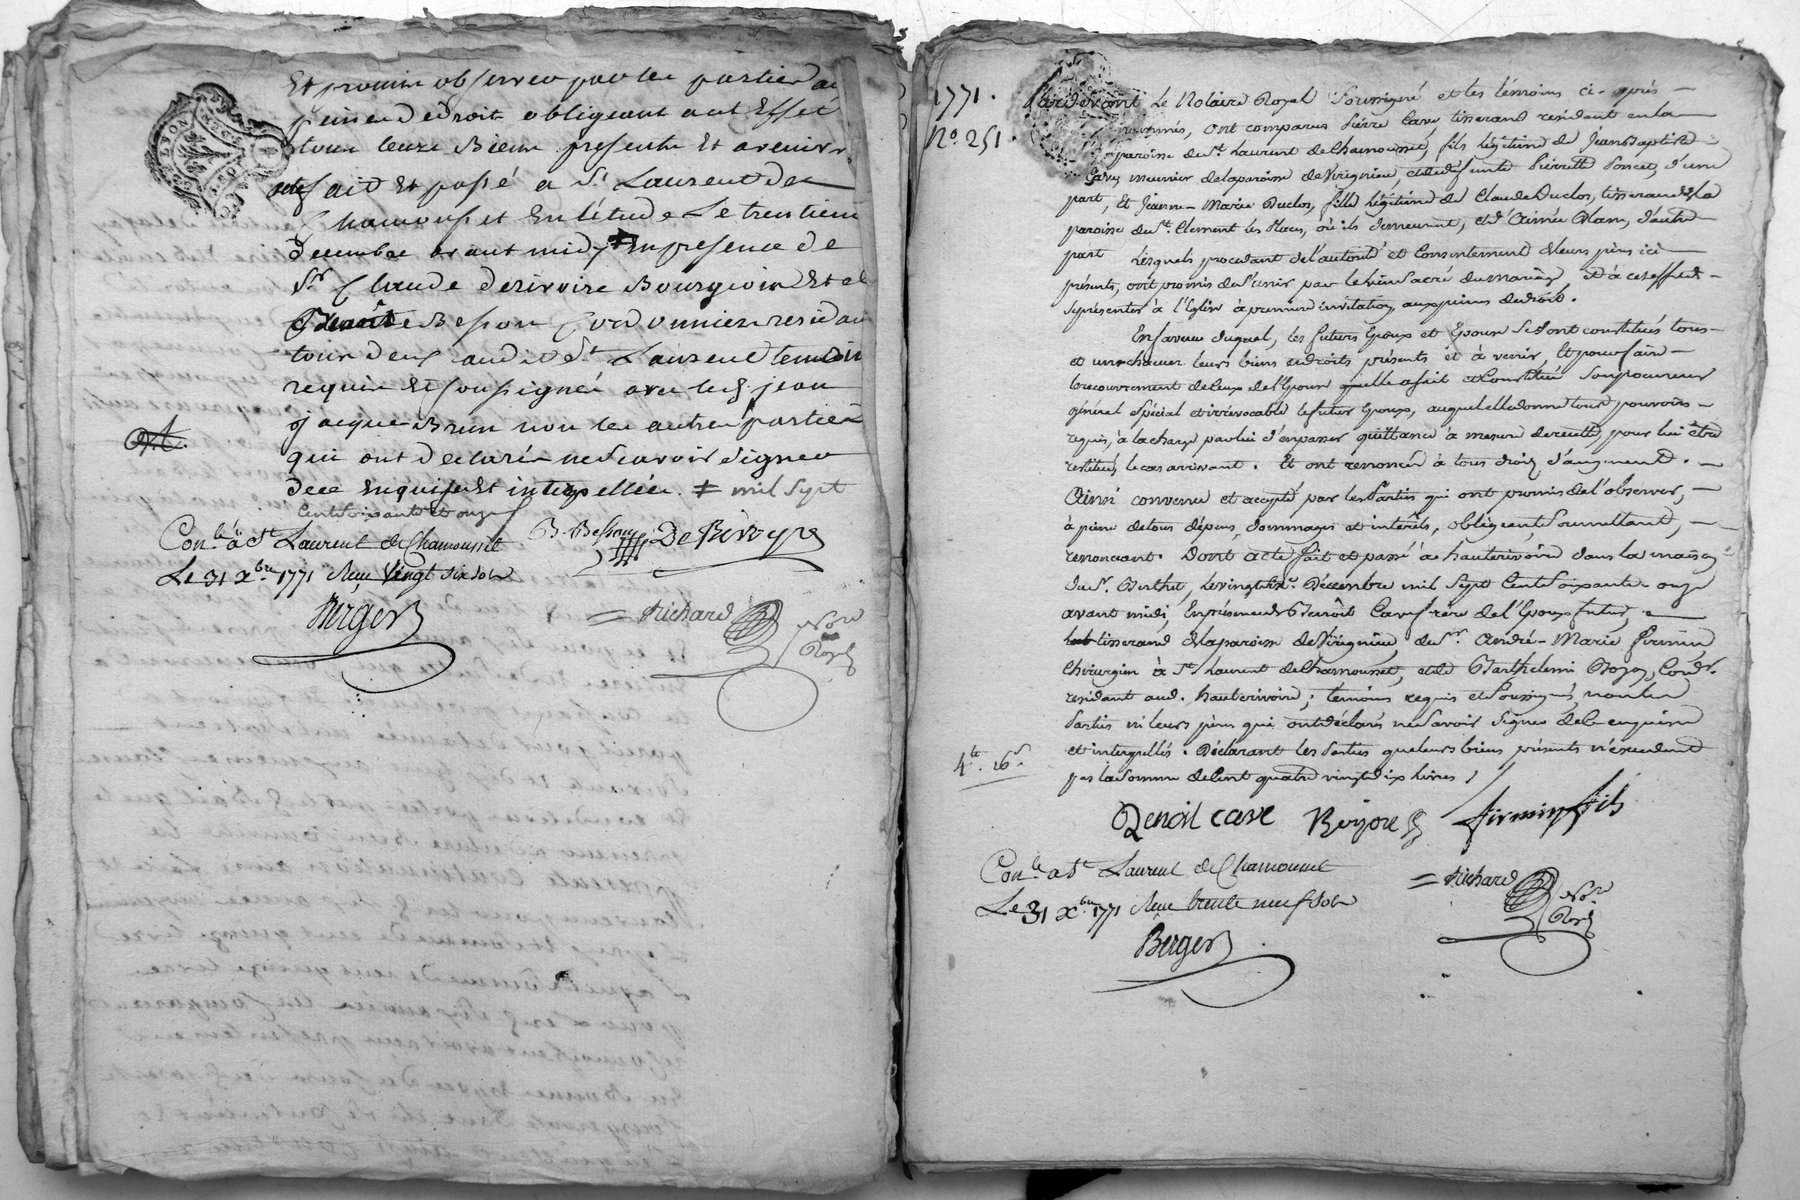 Et promis observer par les parties a
peine de droit obligeant a cet Effet
tous leurs Biens presents Et avenir
fait Et passé a St Laurent de
Chamousset En l'étude Le trentieme
decembre avant midy En presence de
Sr Claude derivoire Bourgeois Et de
Benoit Besson Cordonnier residan
tous deux audit St Laurent temoin
requis Et soussignés avec led jean
jacque Brun non les autres parties
qui ont declarés ne scavoir signer
de ce Enquises Et interpellées. ≠ mil sept
Cent soixante et onze
Conlé à St Laurent de Chamousset
Le 31 xbre 1771 Reçu Vingt six sols
Berger
B. Besson DeRivoyre
= Richard Nore
Royl
1771.
No. 251.
Pardevant Le Notaire Royal soussigné et les témoins ci-après
nommés, ont comparus Pierre Cave tisserand résidant en la
paroisse de St. Laurent de Chamousset, fils légitime de Jean Baptiste
Cave meunier de la paroisse de Virignieu et de défunte Pierrette Poncet, d'une
part, Et Jeanne-Marie Duclos, fille légitime de Claude Duclos, tisserand de la
paroisse de St. Clément les Places, où ils demeurent, et d'Aimée Blanc, d'autre
part Lesquels procédant de l'autorité et consentement de leurs pères ici
présents, ont promis de s'unir par le lien sacré du mariage Et à cet effet
se présenter à l'Eglise à première invitation aux peines de droit.
En faveur duquel, les futurs Epoux et Epouse se sont constitués tous
et un chacun leurs biens et droits présents et à venir, Et pour faire
le recouvrement de ceux de l'Epouse quelle a fait et constitué son procureur
général spécial et irrévocable le futur Epoux, auquel elle donne tous pouvoirs
requis, à la charge par lui d'en passer quittance à mesure de recette pour lui être
restitués le cas arrivant. Et ont renoncés à tous droits d'augment.
Ainsi convenu et accepté par les Parties qui ont promis de l'observer,
à peine de tous dépens, dommages et intérêts, obligeant, soumettant,
renonçant. Dont acte fait et passé à hauterivoire dans la maison
du Sr. Berthet, le vingt Décembre mil sept cent soixante onze
avant midi, En présence de Benoit Cave frère de l'Epoux futur,
tisserand de la paroisse de Virignieu, de Sr. André-Marie Firmin
Chirurgien à St. Laurent de Chamousset, et de Barthelemi Cordr.
residant aud. hauterivoire; témoins requis et soussignés, non les
Parties ni leurs pères qui ont déclarés ne savoir signer de ce enquis
et interpellés. Déclarant les Parties que leurs biens présents n'excedent
pas la somme de Cent quatre vingt dix livres
4lt. 16s.
Benoit Cave firmin fils
Conlé à St Laurent de Chamousset
Le 31 xbre 1771 Reçu trente neuf sols
Berger
= Richard Nore
Royl